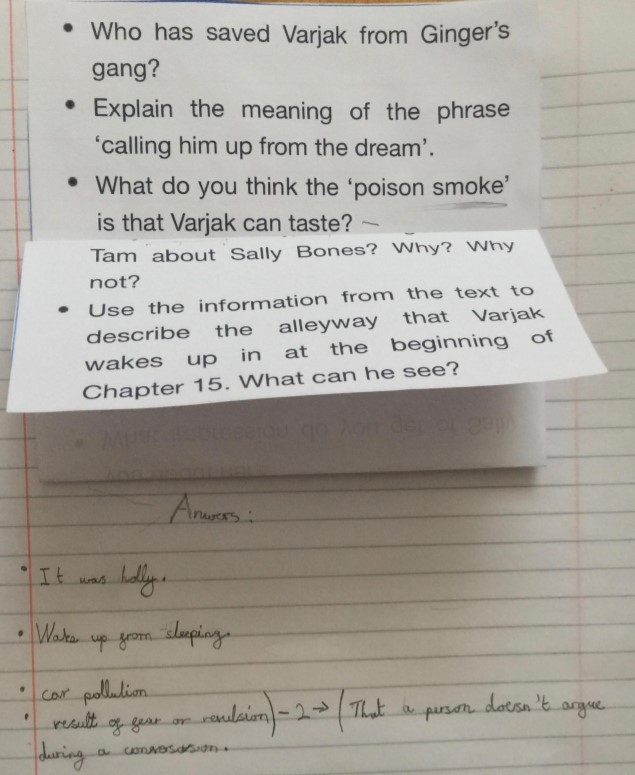 • Who has saved Varjak from Ginger's
gang?
• Explain the meaning of the phrase
'calling him up from the dream'.
• What do you think the 'poison smoke'
is that Varjak can taste?
Tam about Sally Bones? Why? Why
not?
• Use the information from the text to
describe the alleyway that Varjak
wakes up in at the beginning of
Chapter 15. What can he see?
Anwers:
• It was holly.
• Wake up from sleeping.
• car pollution
• result of fear or revulsion) - 2 → (That a person doesn't argue
during a conversasion.